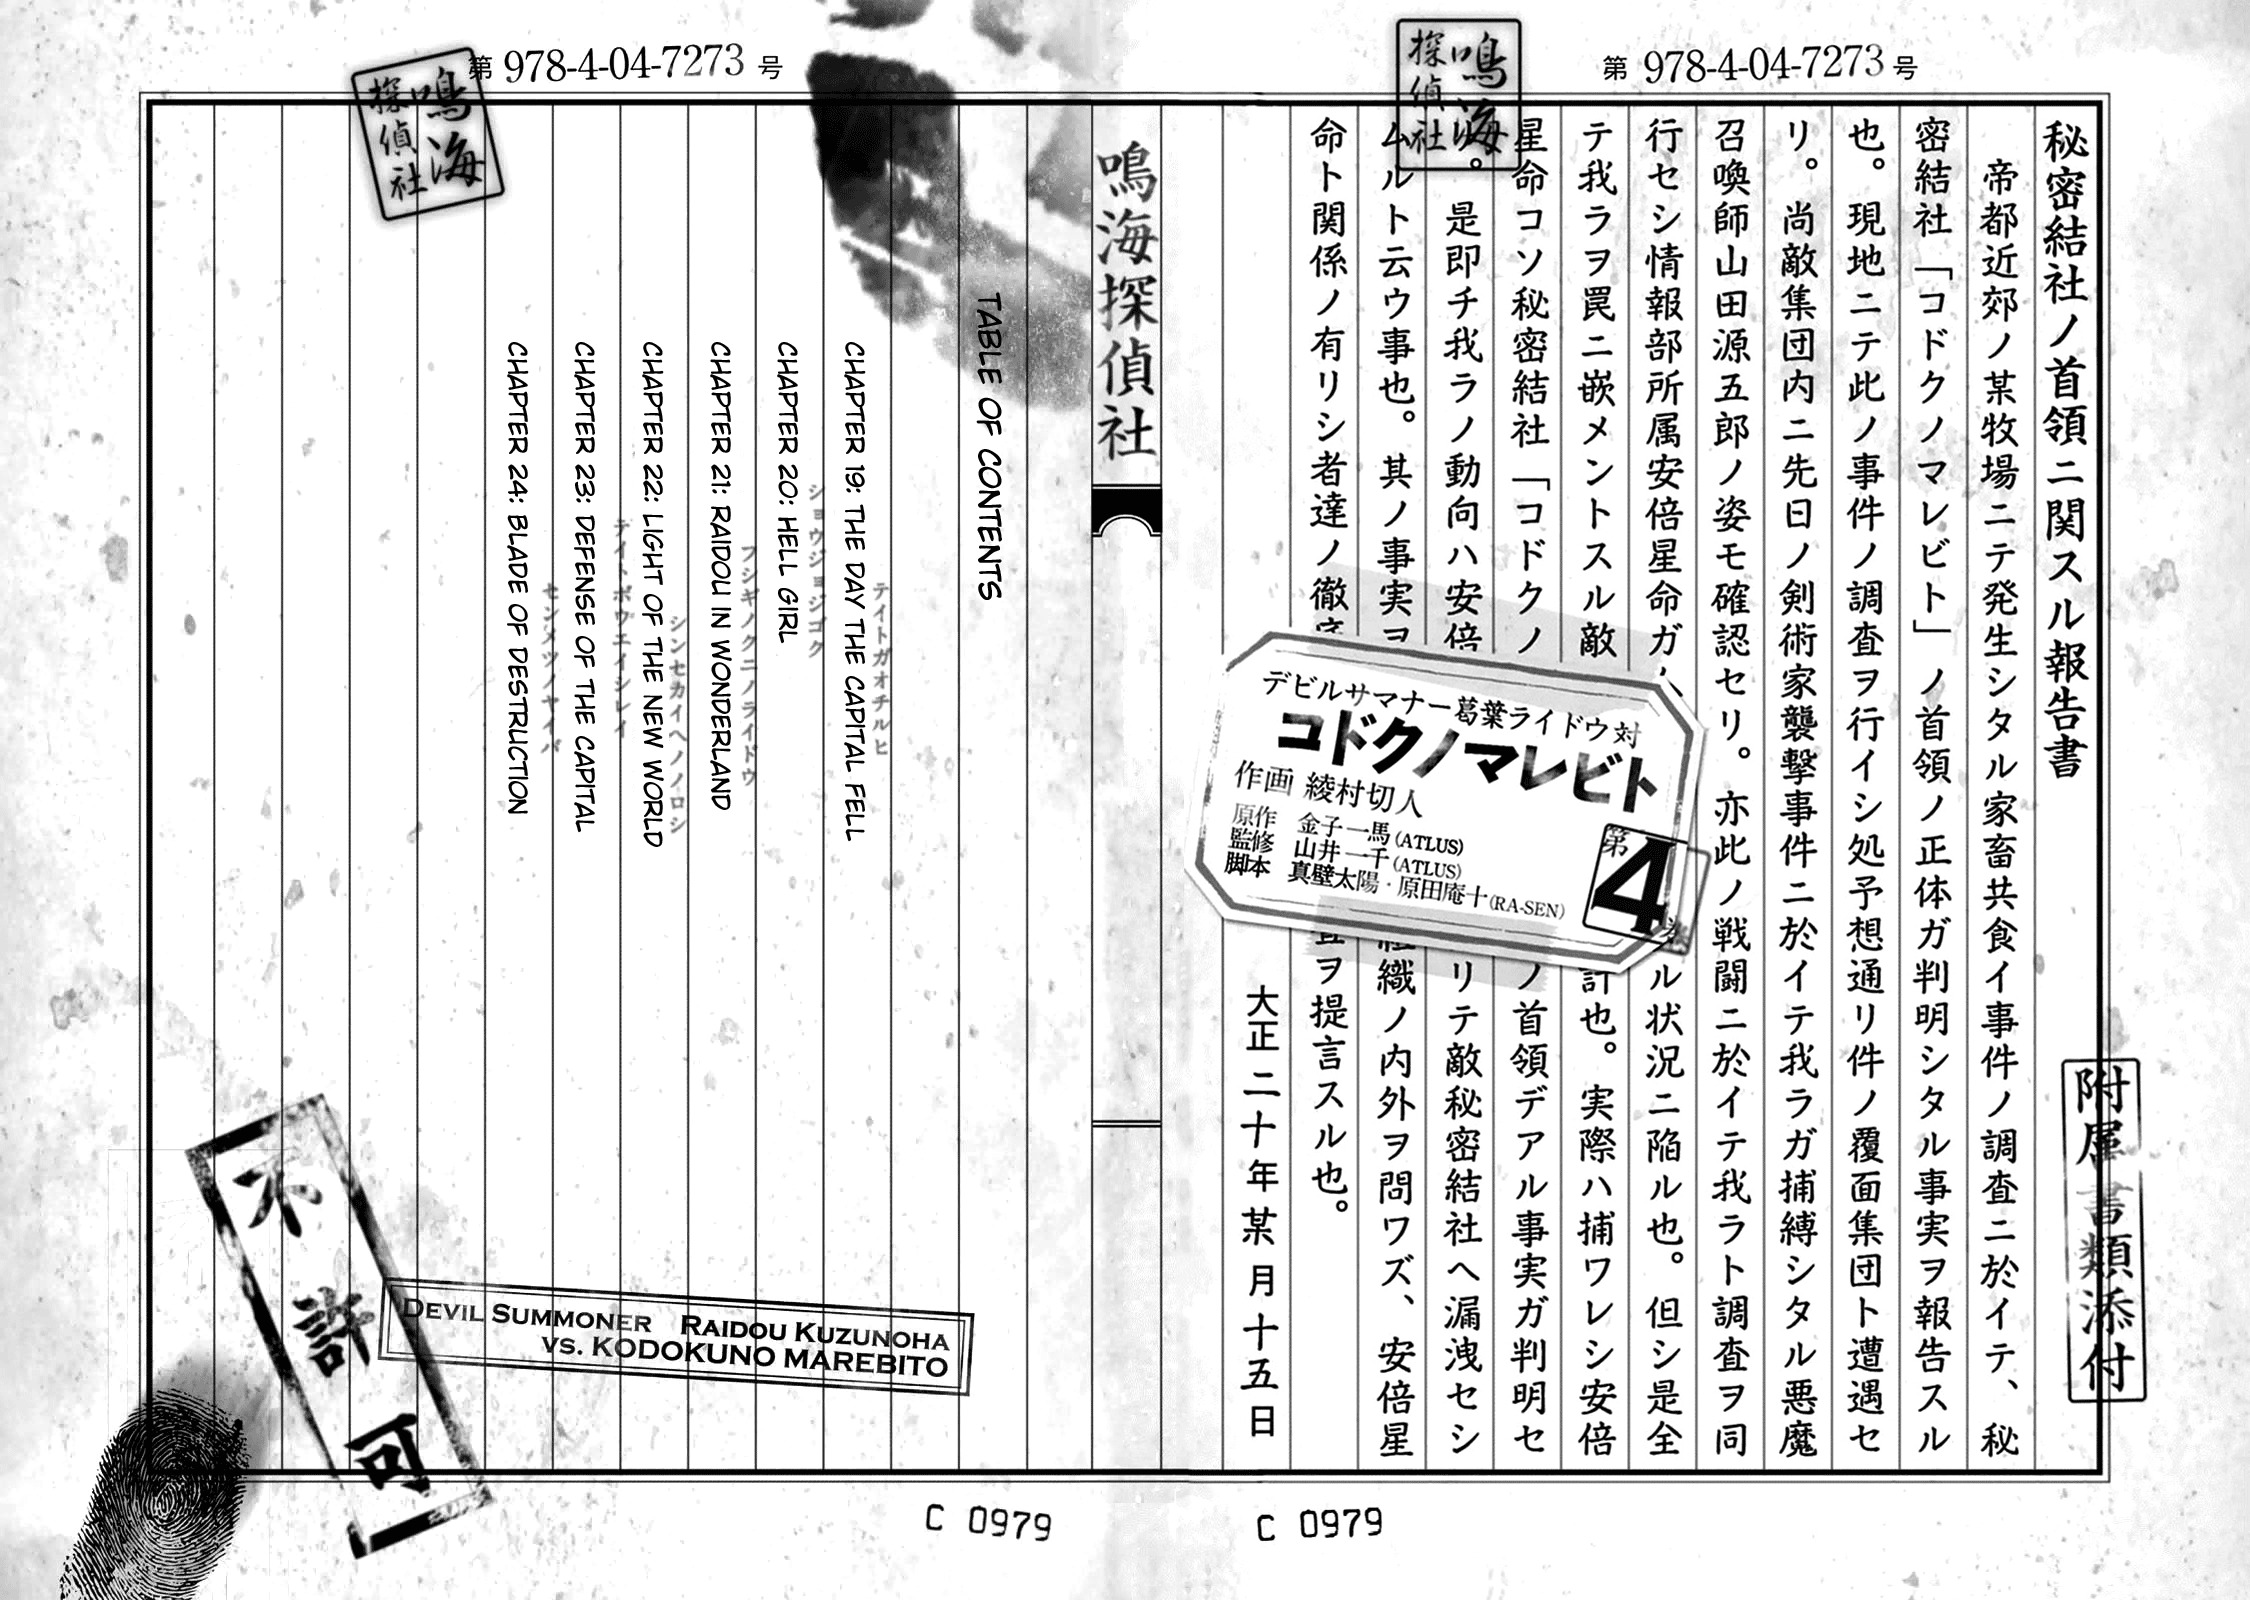 第 978-4-04-7273 号
鳴海
探偵社
秘密結社ノ首領ニ関スル報告書
附属書類添付
帝都近郊ノ某牧場ニテ発生シタル家畜共食イ事件ノ調査ニ於イテ、秘
密結社「コドクノマレビト」ノ首領ノ正体ガ判明シタル事実ヲ報告スル
也。現地ニテ此ノ事件ノ調査ヲ行イシ処予想通リ件ノ覆面集団ト遭遇セ
リ。尚敵集団内ニ先日ノ剣術家襲撃事件ニ於イテ我ラガ捕縛シタル悪魔
召喚師山田源五郎ノ姿モ確認セリ。亦此ノ戦闘ニ於イテ我ラト調査ヲ同
行セシ情報部所属安倍星命ガ
ル状況ニ陥ル也。但シ是全
テ我ラヲ罠ニ嵌メントスル敵
計也。実際ハ捕ワレシ安倍
星命コソ秘密結社「コドクノ
ノ首領デアル事実ガ判明セ
リ。是即チ我ラノ動向ハ安倍
リテ敵秘密結社ヘ漏洩セシ
ムルト云ウ事也。其ノ事実ヲ
組織ノ内外ヲ問ワズ、安倍星
命ト関係ノ有リシ者達ノ徹底
査ヲ提言スル也。
大正二十年某月十五日
デビルサマナー葛葉ライドウ対
コドクノマレビト
第4巻
作画 綾村切人
原作 金子一馬(ATLUS)
監修 山井一千(ATLUS)
脚本 真壁太陽・原田庵十(RA-SEN)
C 0979
鳴海探偵社
第 978-4-04-7273 号
鳴海
探偵社
TABLE OF CONTENTS
テイトガオチルヒ
CHAPTER 19: THE DAY THE CAPITAL FELL
ショウジョジゴク
CHAPTER 20: HELL GIRL
フシギノクニノライドウ
CHAPTER 21: RAIDOU IN WONDERLAND
シンセカイヘノノロシ
CHAPTER 22: LIGHT OF THE NEW WORLD
テイトボウエイシレイ
CHAPTER 23: DEFENSE OF THE CAPITAL
センメツノヤイバ
CHAPTER 24: BLADE OF DESTRUCTION
不許可
DEVIL SUMMONER RAIDOU KUZUNOHA
VS. KODOKUNO MAREBITO
C 0979